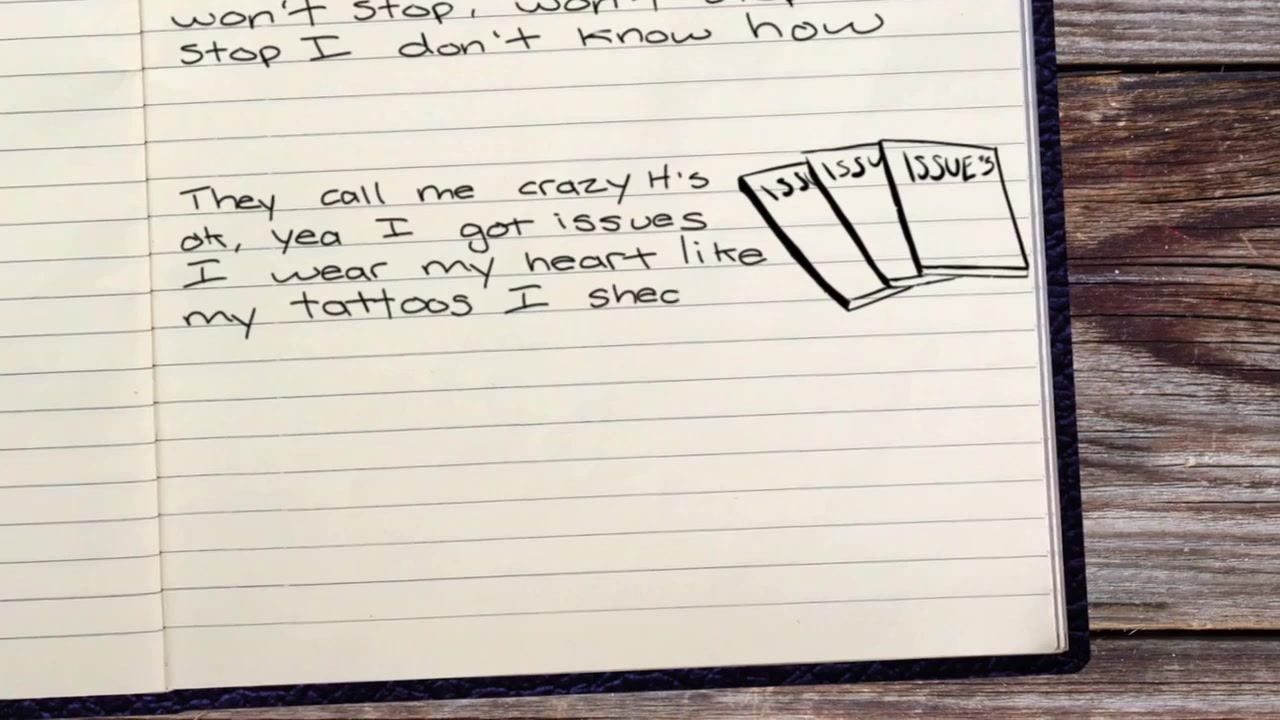 won't stop, won't
stop I don't know how
They call me crazy It's
ok, yea I got issues
I wear my heart like
my tattoos I shec
ISSU
ISSU
ISSUE'S